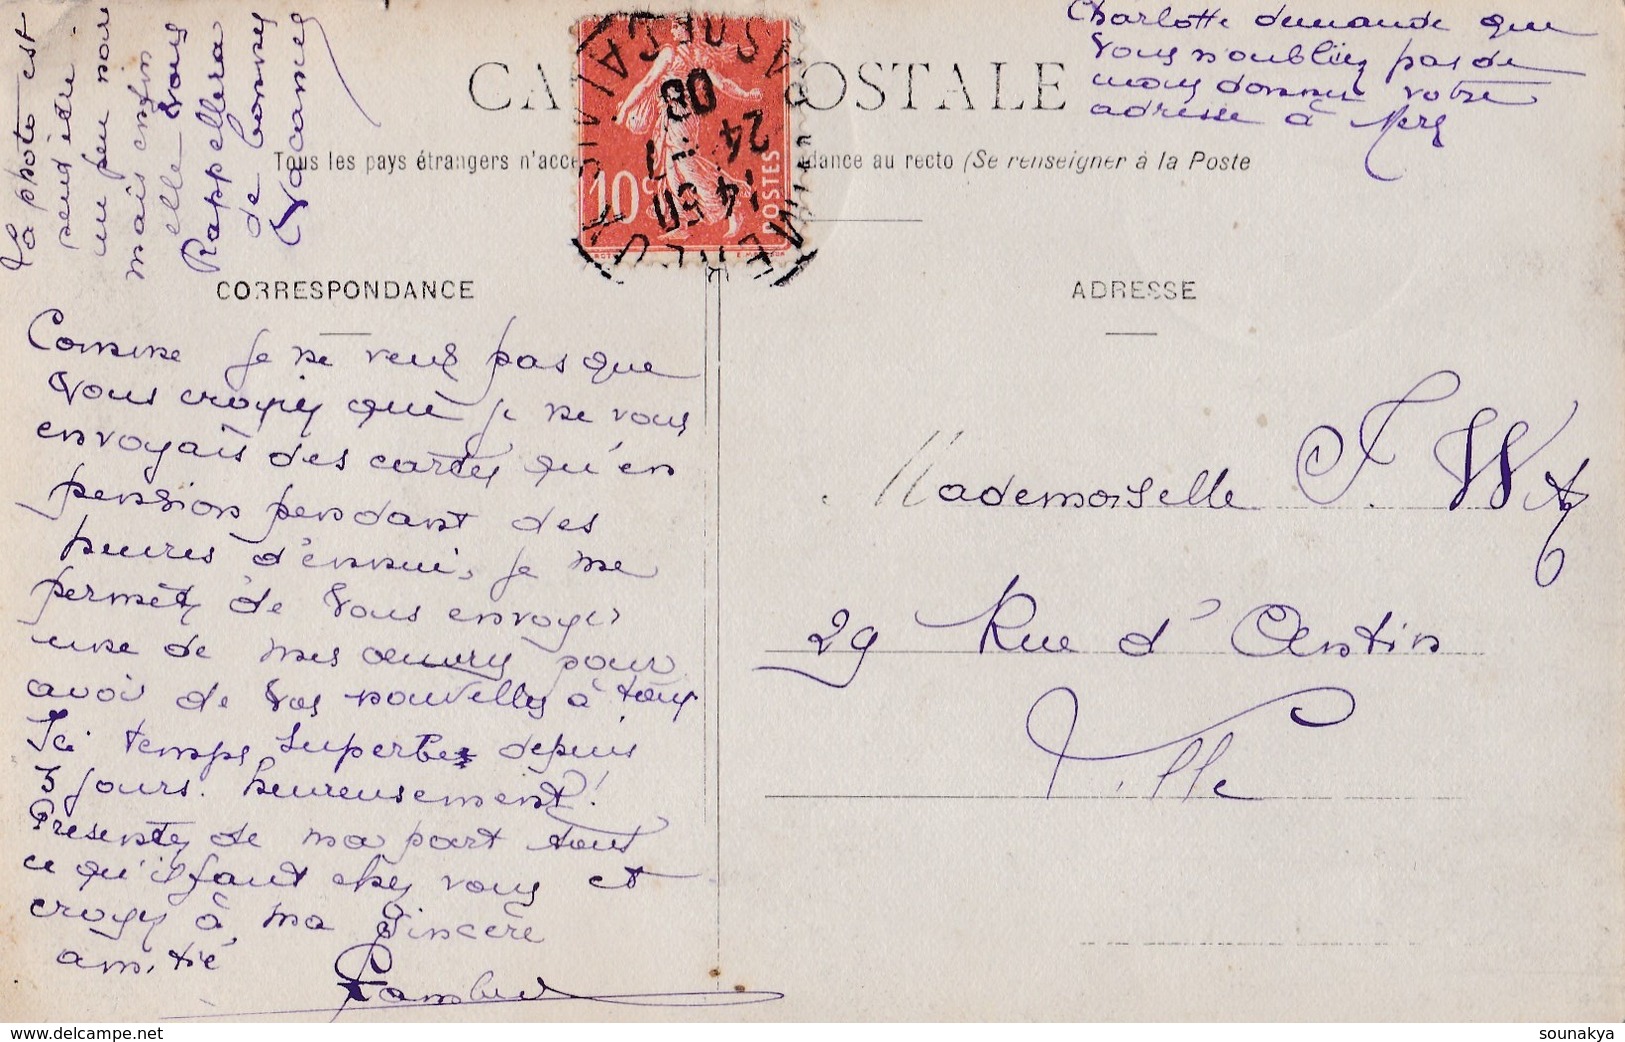 La photo est
peut être
un peu noire
mais enfin
elle vous
Rappellera
de bonnes
Vacances
Charlotte demande que
vous n'oubliiez pas de
nous donner votre
adresse à Mers
CARTE POSTALE
Tous les pays étrangers n'acce
dance au recto (Se renseigner à la Poste
10c
POSTES
14 50
24 - 7
08
CORRESPONDANCE
Comme je ne veux pas que
vous croyiez que je ne vous
envoyais des cartes qu'en
pension pendant des
heures d'ennui, je me
permets de vous envoyer
une de mes œuvres pour
avoir de vos nouvelles à tous
Ici temps superbe depuis
3 jours. heureusement!
Présentez de ma part tout
ce qu'il faut chez vous et
croyez à ma sincère
amitié
ADRESSE
Mademoiselle J.
29 Rue d'Antin
Ville
www.delcampe.net
sounakya